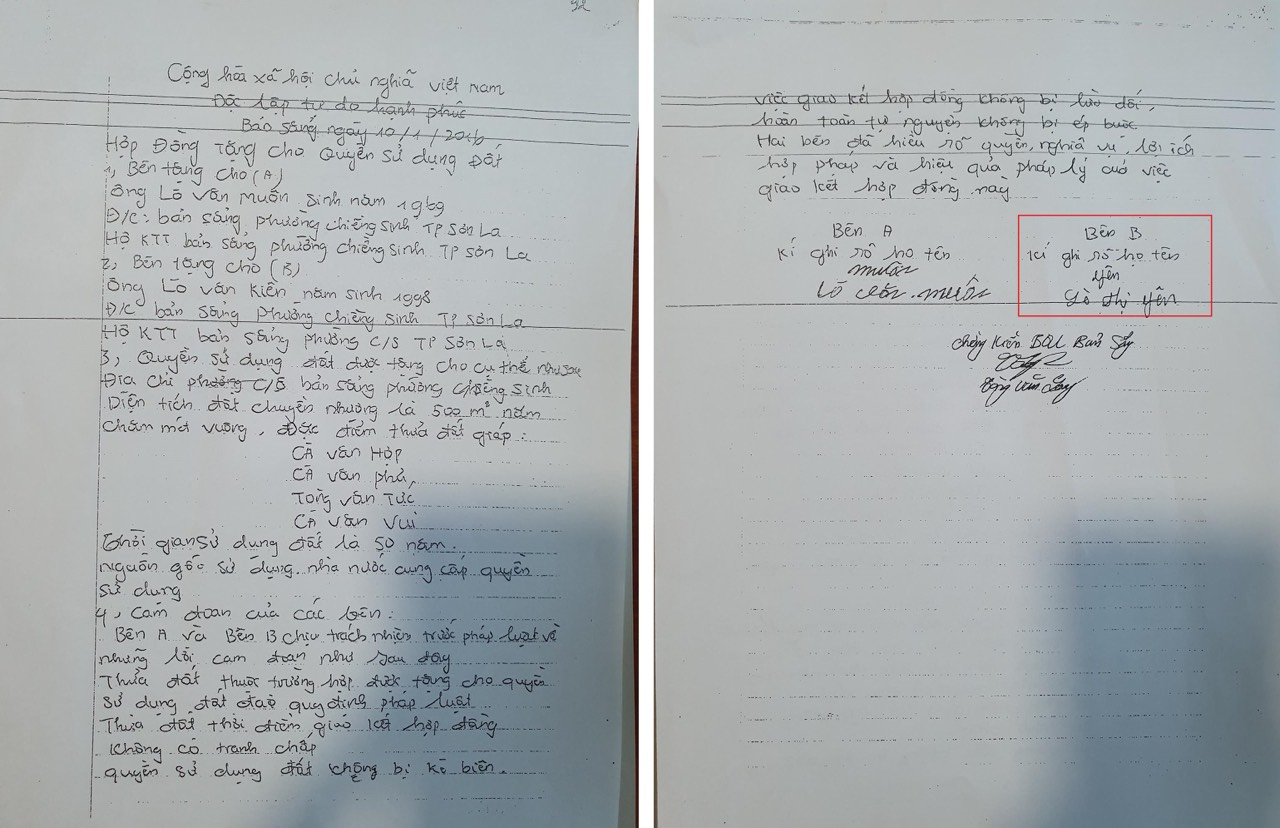 92
Cộng hòa xã hội chủ nghĩa việt nam
Độc lập tự do hạnh phúc
Bản sẳng ngày 10/1/2016
Hợp Đồng Tặng cho Quyền sử dụng Đất
1, Bên tặng cho (A)
Ông Lò văn muôn sinh năm 1969
Đ/C: bản sẳng phường chiềng sinh TP Sơn La
Hộ KTT bản sẳng phường chiềng sinh TP Sơn La
2, Bên tặng cho (B)
Ông Lò văn kiên năm sinh 1998
Đ/C bản sẳng phường chiềng sinh TP Sơn La
Hộ KTT bản sẳng phường C/S TP Sơn La
3, Quyền sử dụng đất được tặng cho cụ thể như sau
Địa chỉ phường C/S bản sẳng phường chiềng sinh
Diện tích đất chuyển nhượng là 500 m² năm
chăm mét vuông, đặc điểm thửa đất giáp:
CÀ văn Hợp
CÀ văn phủ,
Tòng văn Tực
CÀ văn Vui
Thời gian sử dụng đất là 50 năm.
nguồn gốc sử dụng nhà nước cung cấp quyền
sử dụng
4, Cam đoan của các bên:
Bên A và Bên B chịu trách nhiệm trước pháp luật về
những lời cam đoan như sau đây
Thửa đất thuộc trường hợp được tặng cho quyền
sử dụng đất đai quy định pháp luật
Thửa đất thời điểm giao kết hợp đồng
Không có tranh chấp
quyền sử dụng đất không bị kê biên.
việc giao kết hợp đồng không bị lừa dối,
hoàn toàn tự nguyện không bị ép buộc.
Hai bên đã hiểu rõ quyền, nghĩa vụ, lợi ích
hợp pháp và hiệu quả pháp lý của việc
giao kết hợp đồng này
Bên A
Kí ghi rõ họ tên
muôn
Lò văn muôn
Bên B
Kí ghi rõ họ tên
yên
Lò thị yên
chứng kiến BQL Bản Sẳng
Tòng văn